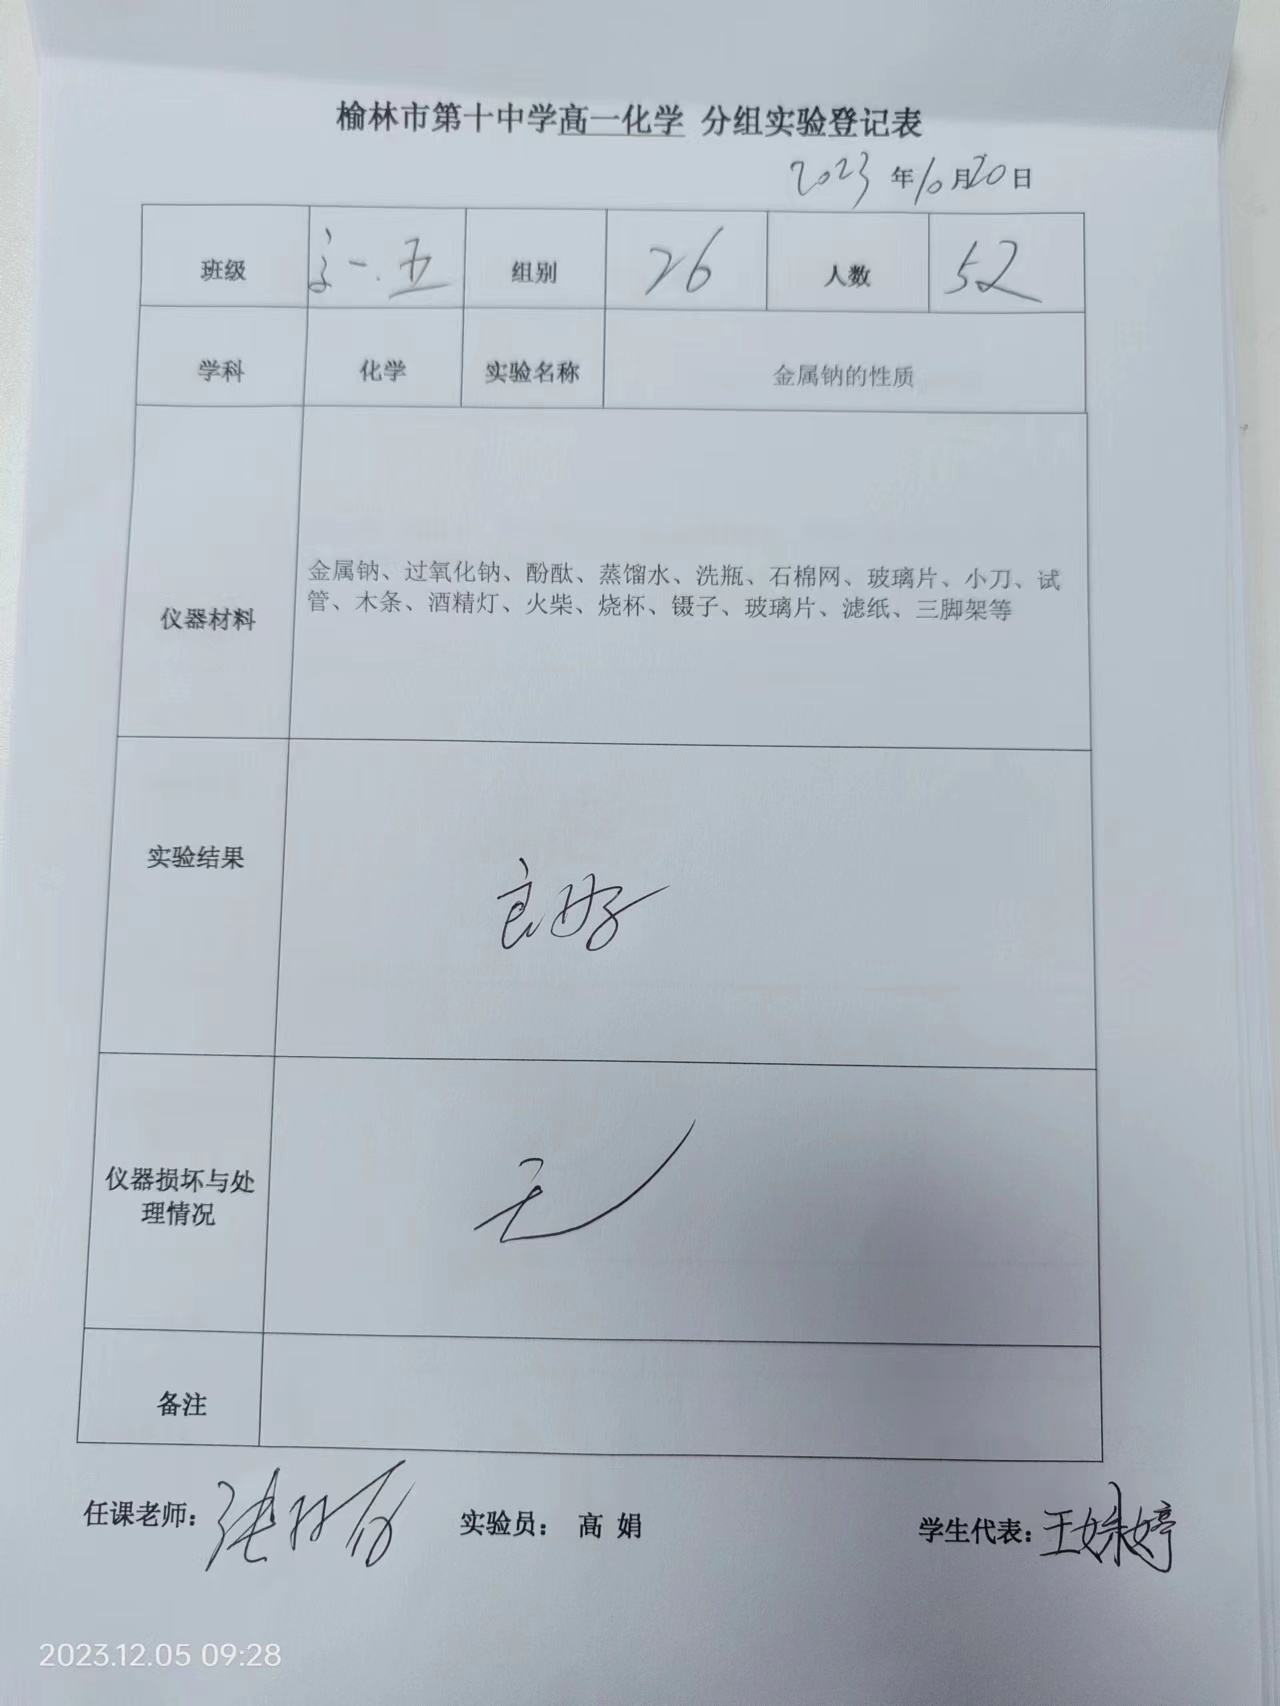 榆林市第十中学高一化学 分组实验登记表
2023年10月20日
班级 高一.五 组别 26 人数 52
学科 化学 实验名称 金属钠的性质
仪器材料
金属钠、过氧化钠、酚酞、蒸馏水、洗瓶、石棉网、玻璃片、小刀、试
管、木条、酒精灯、火柴、烧杯、镊子、玻璃片、滤纸、三脚架等
实验结果 良好
仪器损坏与处
理情况
无
备注
任课老师: 张 实验员： 高 娟 学生代表: 王姝婷
2023.12.05 09:28